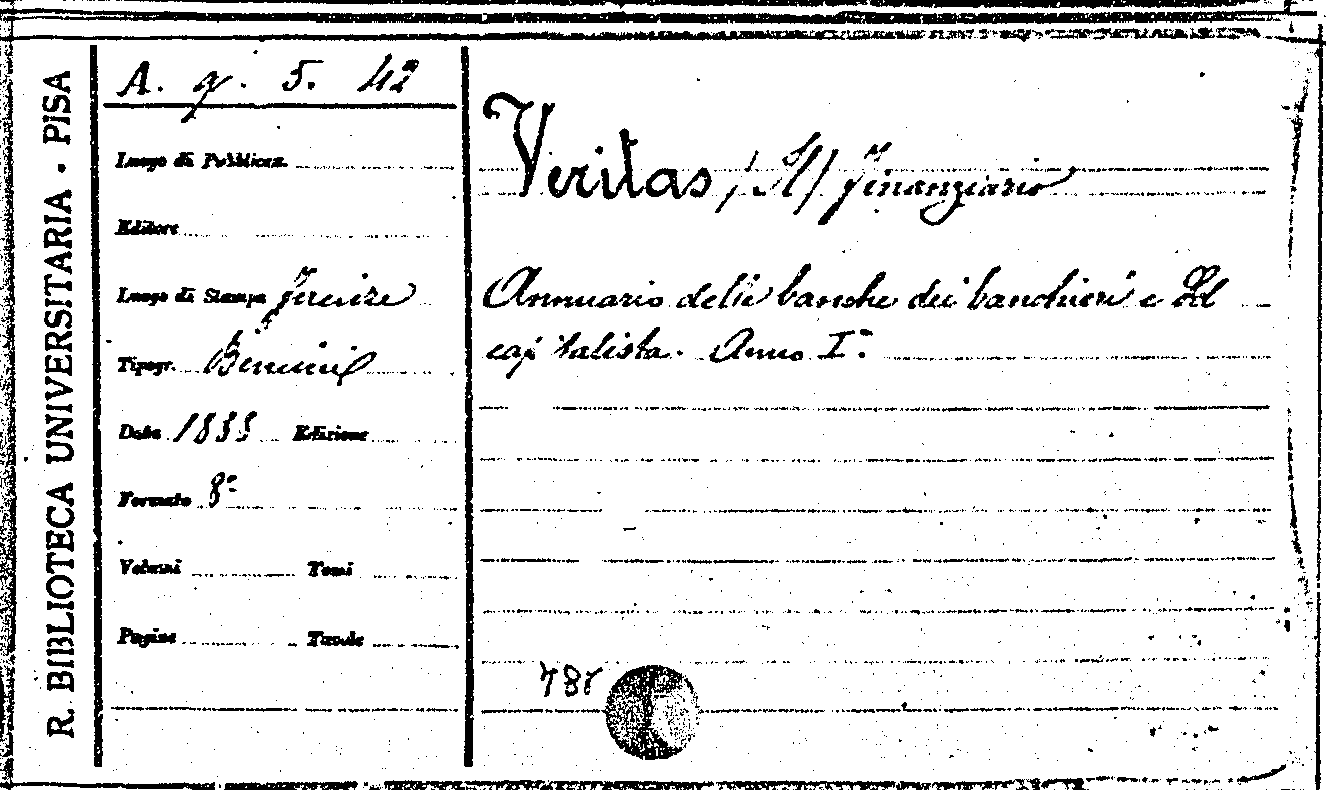 R. BIBLIOTECA UNIVERSITARIA - PISA
A. g. 5. 42
Luogo di Pubblicaz.
Editore
Luogo di Stampa Firenze
Tipogr.
Data Edizione
Formato 8º
Volumi Tomi
Pagine Tavole
Veritas /Il/ finanziario
Annuario delle banche dei banchieri e del
capitalista. Anno Iº